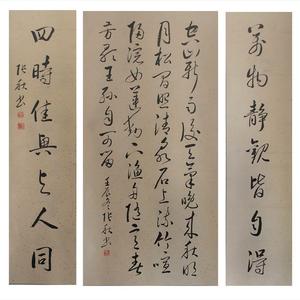 萬物靜觀皆自得
空山新雨後天氣晚來秋明
月松間照清泉石上流竹喧
歸浣女蓮動下漁舟隨意春
芳歇王孫自可留 壬辰冬 張秋書
四時佳興与人同
張秋書